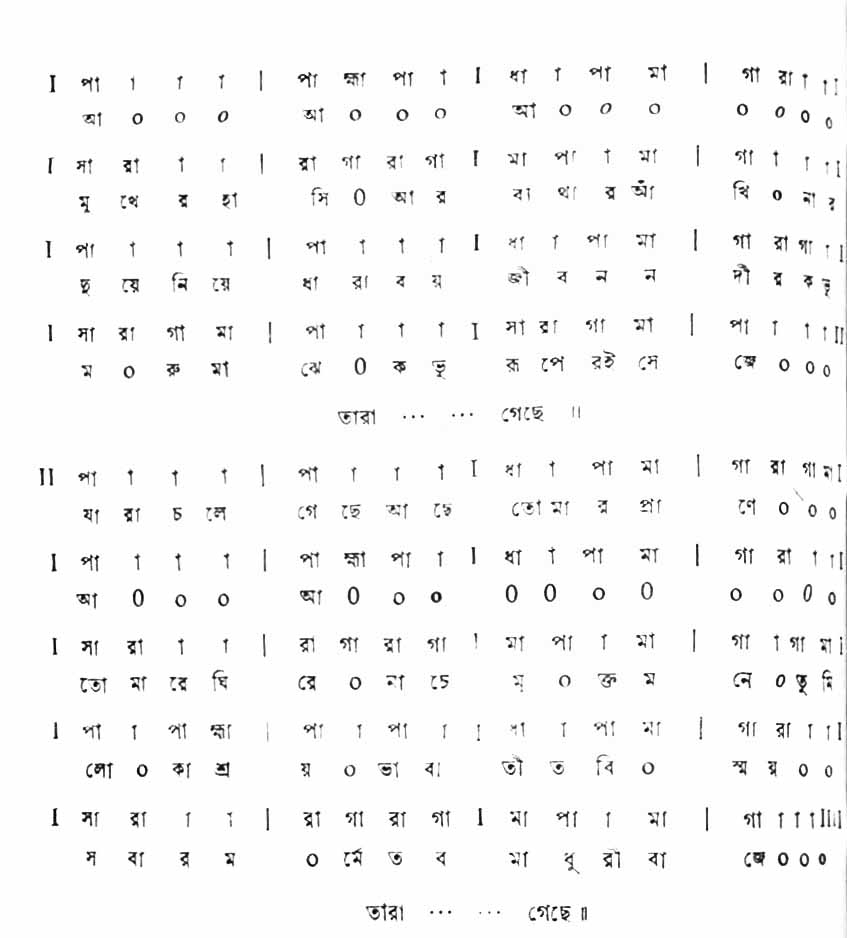 I পা া া া | পা হ্মা পা া I ধা া পা মা | গা রা া াI
আ ০ ০ ০ আ ০ ০ ০ আ ০ ০ ০ ০ ০ ০ ০
I সা রা া া | রা গা রা গা I মা পা া মা | গা া া াI
মু খে র হা সি ০ আ র ব্য থা র আঁ খি ০ না র
I পা া া া | পা া া া I ধা া পা মা | গা রা গা াI
ছু য়ে নি য়ে ধা রা ব য় জী ব ন ন দী র ক ভূ
I সা রা গা মা | পা া া া I সা রা গা মা | পা া া াII
ম ০ রু মা ঝে ০ ক ভূ রূ পে রই সে জে ০ ০ ০
তারা ... ... গেছে ॥
II পা া া া | পা া া া I ধা া পা মা | গা রা গা মাI
যা রা চ লে গে ছে আ ছে তো মা র প্রা ণে ০ ০ ০
I পা া া া | পা হ্মা পা া I ধা া পা মা | গা রা া াI
আ ০ ০ ০ আ ০ ০ ০ ০ ০ ০ ০ ০ ০ ০ ০
I সা রা া া | রা গা রা গা I মা পা া মা | গা া গা মাI
তো মা রে ঘি রে ০ না চে মু ০ ক্ত ম নে ০ তু মি
I পা া পা হ্মা | পা া পা া I ধা া পা মা | গা রা া াI
লো ০ কা শ্র য় ০ ভা বা তী ত বি ০ স্ম য় ০ ০
I সা রা া া | রা গা রা গা I মা পা া মা | গা া া াIIII
স বা র ম ০ র্মে ত ব মা ধু রী বা জে ০ ০ ০
তারা ... ... গেছে ॥